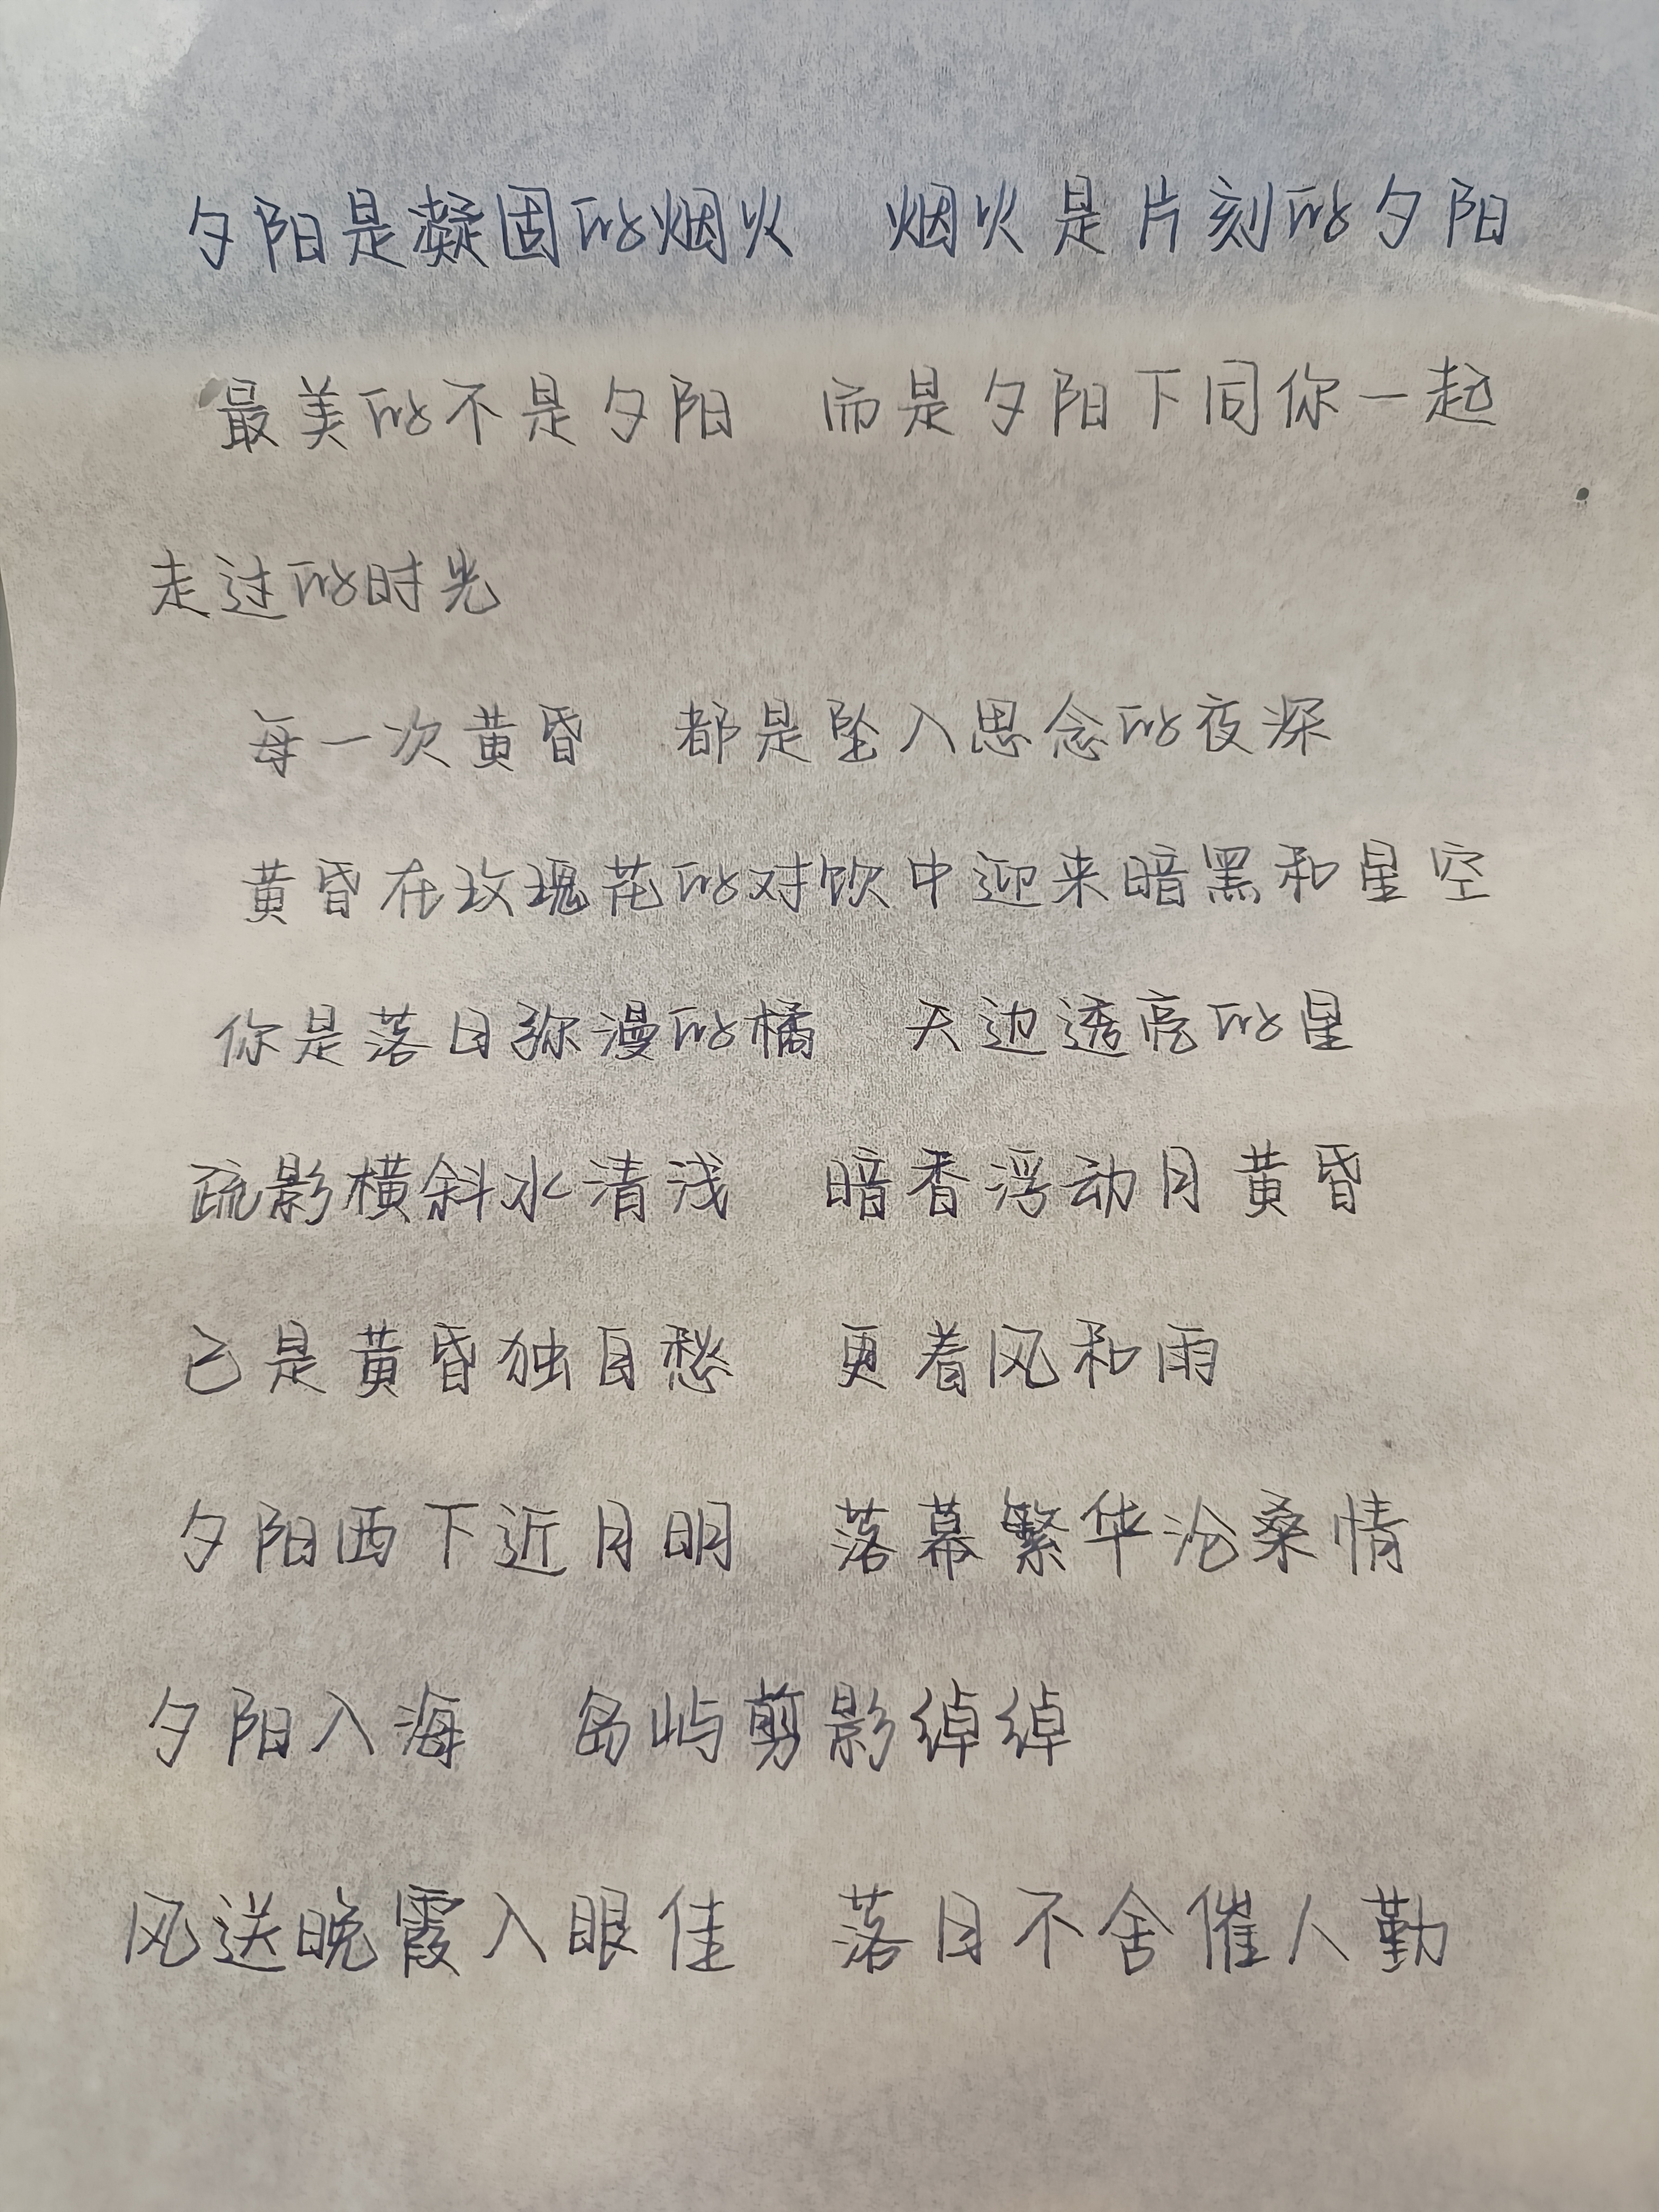 夕阳是凝固的烟火　烟火是片刻的夕阳
最美的不是夕阳　而是夕阳下同你一起
走过的时光
每一次黄昏　都是坠入思念的夜深
黄昏在玫瑰花的对饮中迎来暗黑和星空
你是落日弥漫的橘　天边透亮的星
疏影横斜水清浅　暗香浮动月黄昏
已是黄昏独自愁　更着风和雨
夕阳西下近月明　落幕繁华沧桑情
夕阳入海　岛屿剪影绰绰
风送晚霞入眼佳　落日不舍催人勤